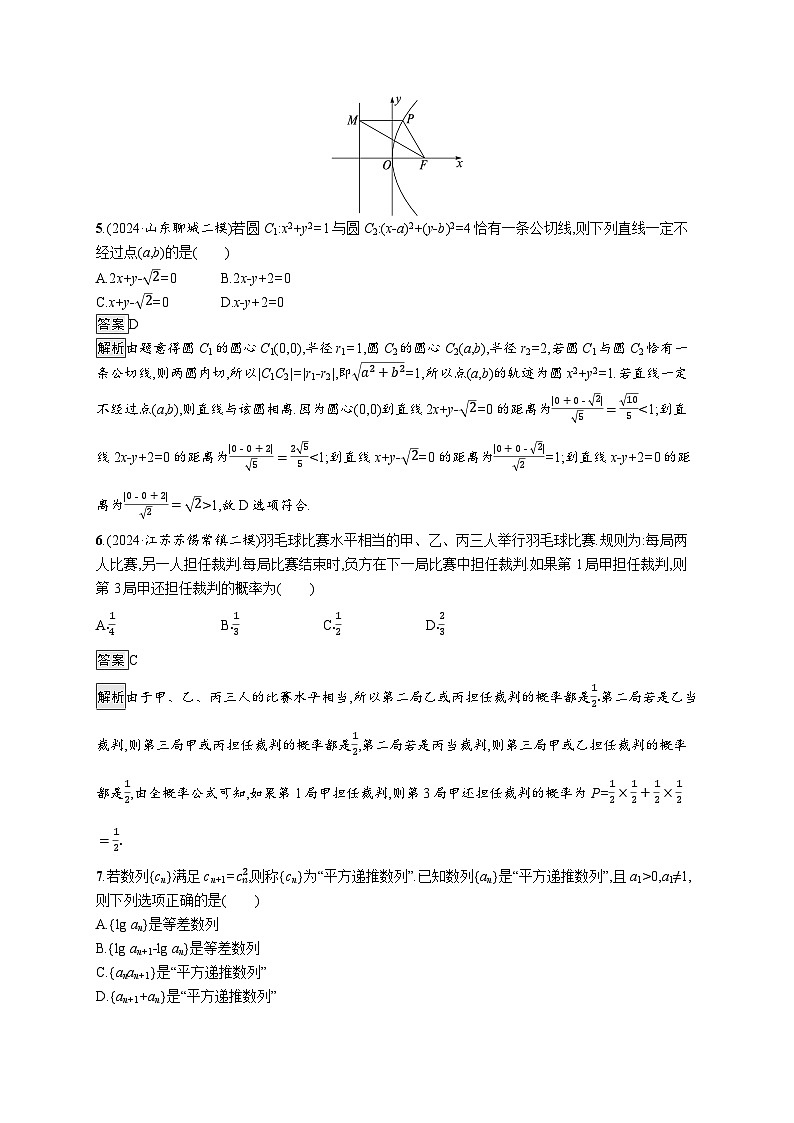 y
M
P
O
F
x
5.(2024·山东聊城二模)若圆 C₁:x²+y²=1 与圆 C₂:(x-a)²+(y-b)²=4 恰有一条公切线,则下列直线一定不
经过点(a,b)的是(　　)
A.2x+y-√2=0　　B.2x-y+2=0
C.x+y-√2=0　　D.x-y+2=0
答案D
解析由题意得圆 C₁ 的圆心 C₁(0,0),半径 r₁=1,圆 C₂ 的圆心 C₂(a,b),半径 r₂=2,若圆 C₁ 与圆 C₂ 恰有一
条公切线,则两圆内切,所以|C₁C₂|=|r₁-r₂|,即√(a²+b²)=1,所以点(a,b)的轨迹为圆 x²+y²=1.若直线一定
不经过点(a,b),则直线与该圆相离.因为圆心(0,0)到直线 2x+y-√2=0 的距离为|0+0-√2|/√5=√10/5<1;到直
线 2x-y+2=0 的距离为|0-0+2|/√5=2√5/5<1;到直线 x+y-√2=0 的距离为|0+0-√2|/√2=1;到直线 x-y+2=0 的距
离为|0-0+2|/√2=√2>1,故 D 选项符合.
6.(2024·江苏苏锡常镇二模)羽毛球比赛水平相当的甲、乙、丙三人举行羽毛球比赛.规则为:每局两
人比赛,另一人担任裁判.每局比赛结束时,负方在下一局比赛中担任裁判.如果第 1 局甲担任裁判,则
第 3 局甲还担任裁判的概率为(　　)
A.1/4　　B.1/3　　C.1/2　　D.2/3
答案C
解析由于甲、乙、丙三人的比赛水平相当,所以第二局乙或丙担任裁判的概率都是1/2.第二局若是乙当
裁判,则第三局甲或丙担任裁判的概率都是1/2,第二局若是丙当裁判,则第三局甲或乙担任裁判的概率
都是1/2,由全概率公式可知,如果第 1 局甲担任裁判,则第 3 局甲还担任裁判的概率为 P=1/2×1/2+1/2×1/2
=1/2.
7.若数列{cₙ}满足 cₙ₊₁=cₙ²,则称{cₙ}为“平方递推数列”.已知数列{aₙ}是“平方递推数列”,且 a₁>0,a₁≠1,
则下列选项正确的是(　　)
A.{lg aₙ}是等差数列
B.{lg aₙ₊₁-lg aₙ}是等差数列
C.{aₙaₙ₊₁}是“平方递推数列”
D.{aₙ₊₁+aₙ}是“平方递推数列”